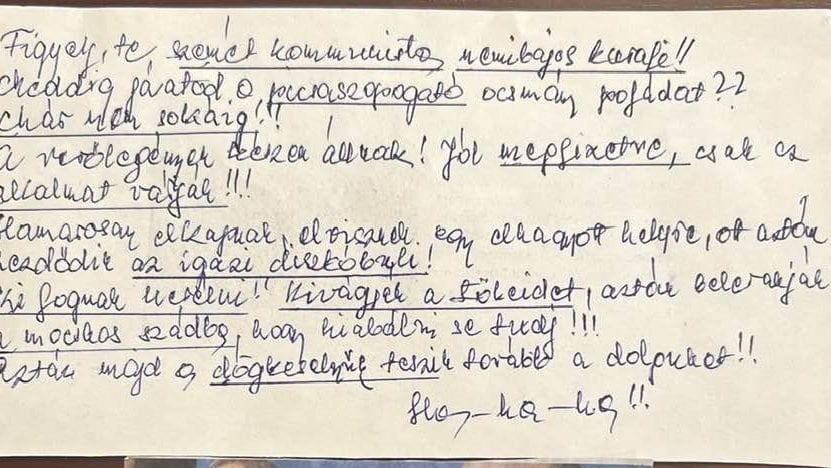 Figyelj, te, szemét kommunista, nemibajos kurafi!!
Meddig járatod a picsaszopogató ocsmány pofádat??
Már nem sokáig!!
A verőlegények készen állnak! Jól megfizetve, csak az
alkalmat várják!!!
Hamarosan elkapnak, elvisznek egy elhagyott helyre, ott aztán
kezdődik az igazi
Ki fognak herélni!! Kivágják a tökeidet, aztán belerakják
a mocskos szádba, hogy kiabálni se tudj!!!
Aztán majd a dögkeselyűk teszik tovább a dolgukat!!
Ha-ha-ha!!